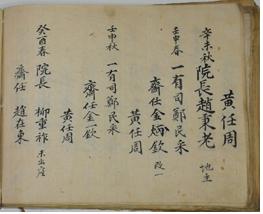 黃任周
辛未秋 院長 趙秉老 地主
壬申春 一有司 鄭民采
齋任 金炳欽 改一
黃任周
壬申秋 一有司 鄭民采
齋任 金一欽
黃任周
癸酉春 院長 柳重祚 未出座
齋任 趙在東